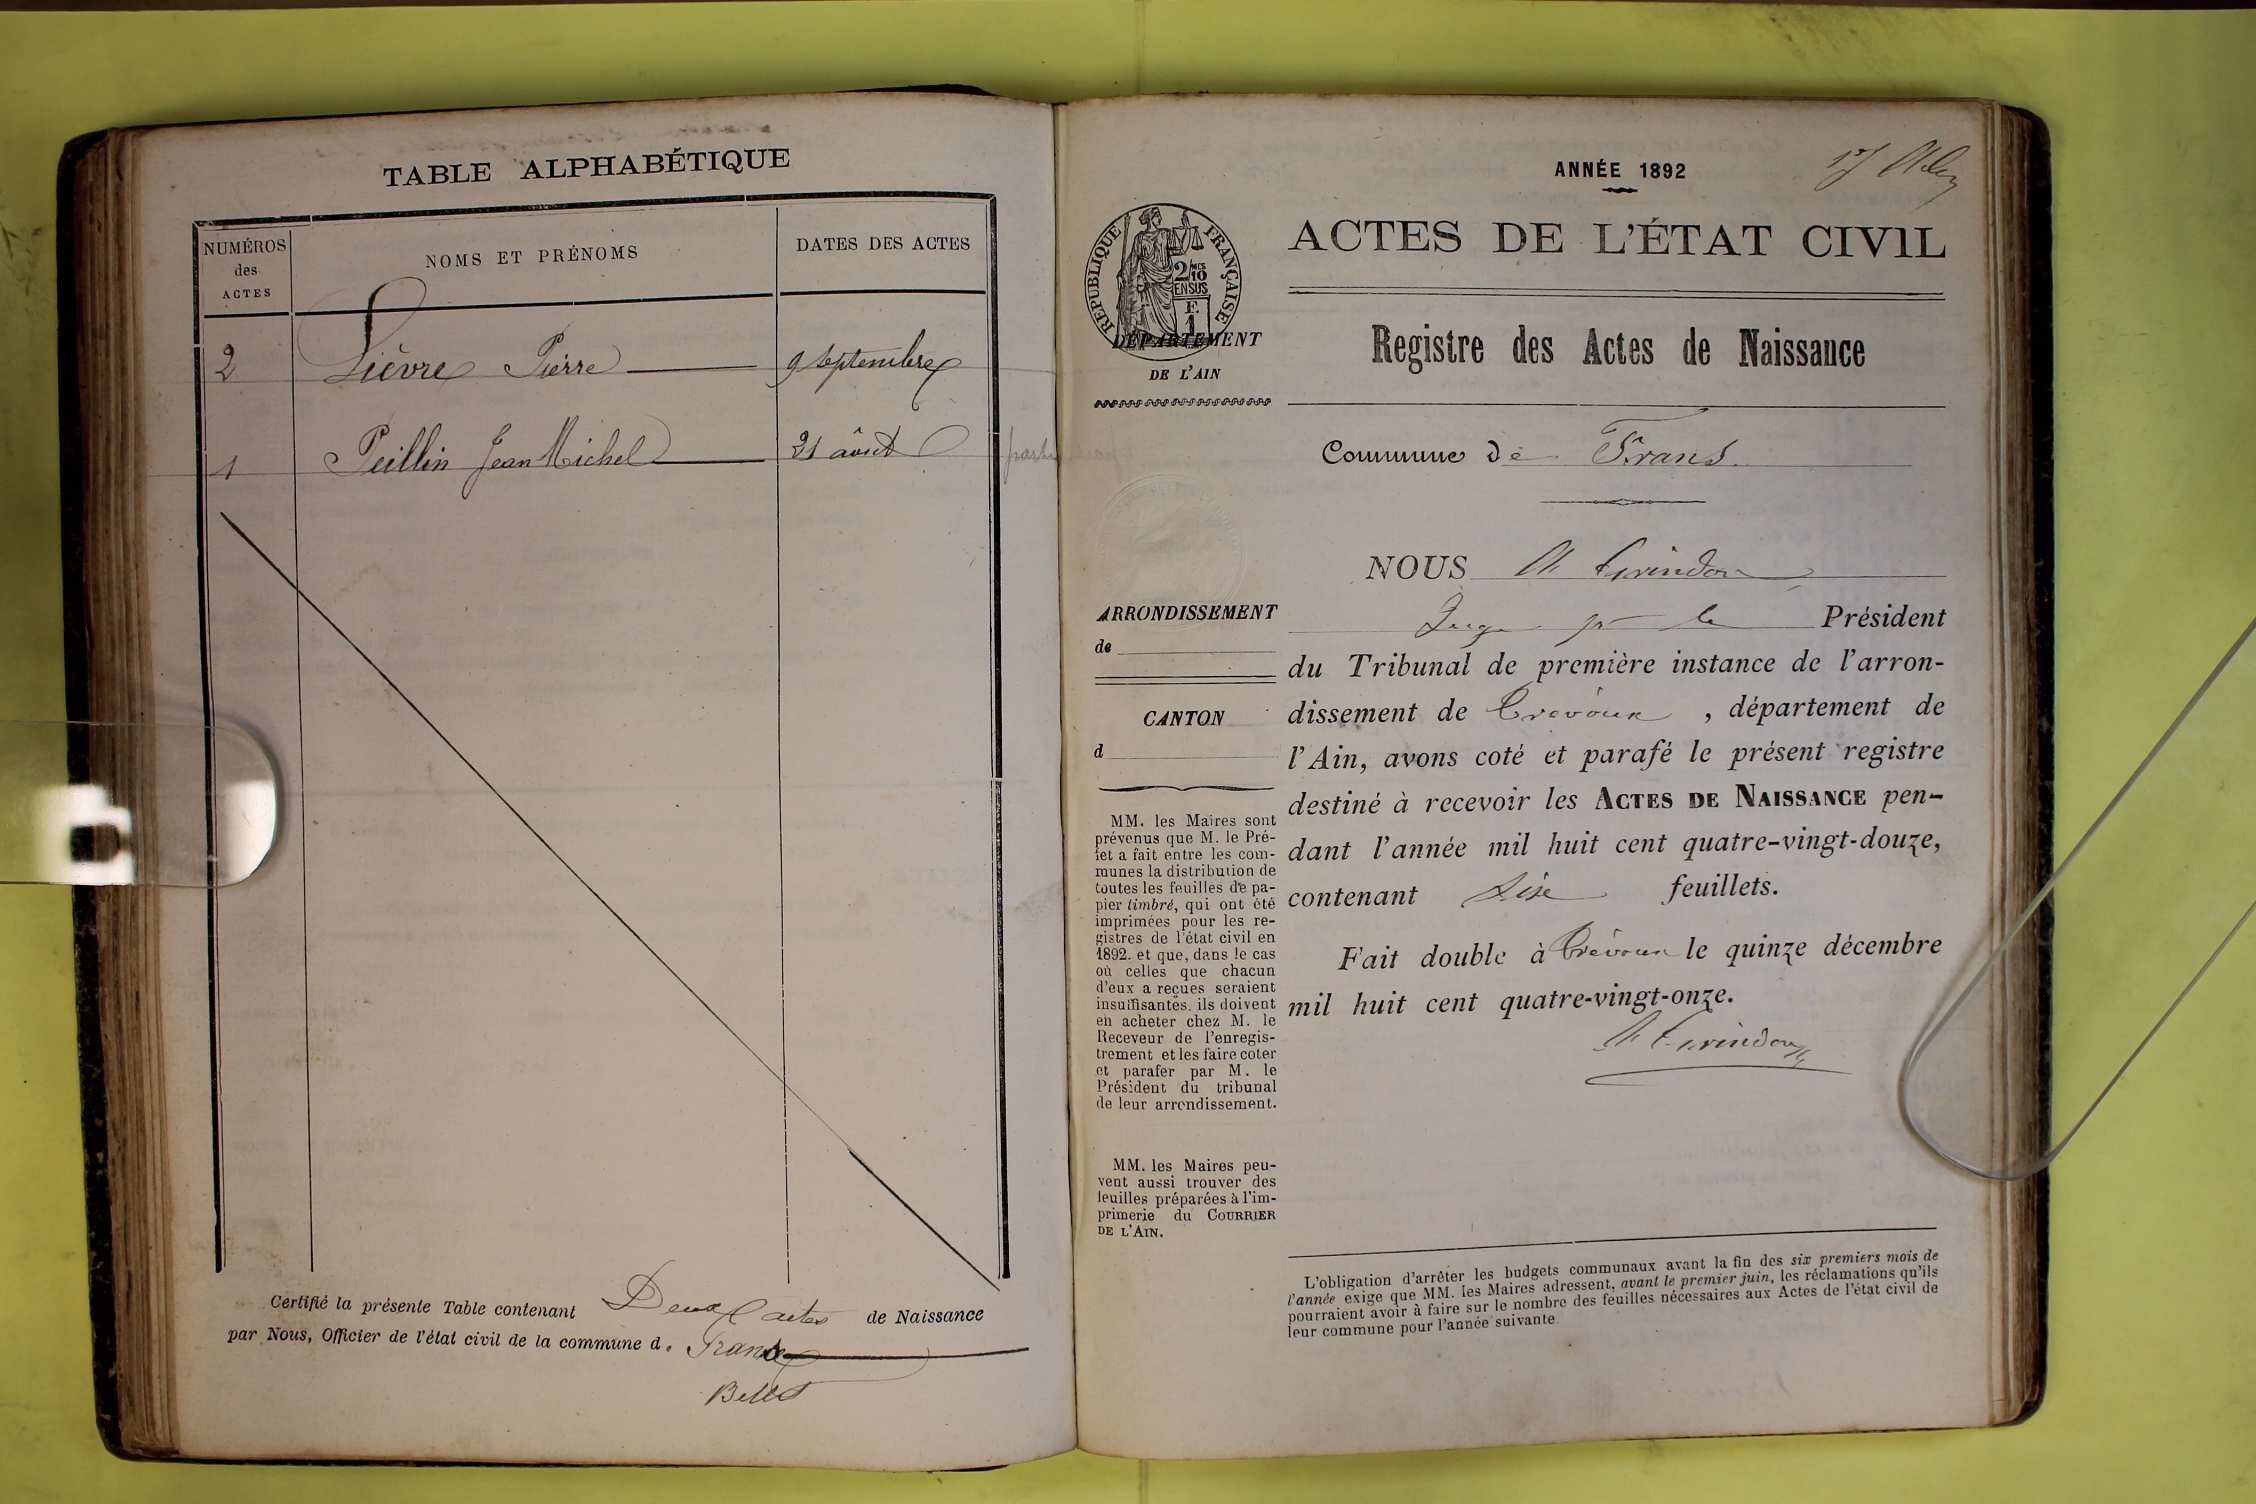 TABLE ALPHABÉTIQUE
NUMÉROS
des
ACTES
NOMS ET PRÉNOMS
DATES DES ACTES
2 Lièvre Pierre 9 septembre
1 Peillin Jean Michel 21 âout
Certifié la présente Table contenant Deux actes de Naissance
par Nous, Officier de l'état civil de la commune d. Frans
ANNÉE 1892
ACTES DE L'ÉTAT CIVIL
RÉPUBLIQUE FRANÇAISE
2/10
EN SUS
F.
1
DÉPARTEMENT
DE L'AIN
Registre des Actes de Naissance
Commune de Frans
ARRONDISSEMENT
de
CANTON
d
MM. les Maires sont
prévenus que M. le Pré-
fet a fait entre les com-
munes la distribution de
toutes les feuilles de pa-
pier timbré, qui ont été
imprimées pour les re-
gistres de l'état civil en
1892. et que, dans le cas
où celles que chacun
d'eux a reçues seraient
insuffisantes, ils doivent
en acheter chez M. le
Receveur de l'enregis-
trement et les faire coter
et parafer par M. le
Président du tribunal
de leur arrondissement.
MM. les Maires peu-
vent aussi trouver des
feuilles préparées à l'im-
primerie du COURRIER
DE L'AIN.
NOUS
Juge pr le Président
du Tribunal de première instance de l'arron-
dissement de Trévoux, département de
l'Ain, avons coté et parafé le présent registre
destiné à recevoir les ACTES DE NAISSANCE pen-
dant l'année mil huit cent quatre-vingt-douze,
contenant six feuillets.
Fait double à Trévoux le quinze décembre
mil huit cent quatre-vingt-onze.
L'obligation d'arrêter les budgets communaux avant la fin des six premiers mois de
l'année exige que MM. les Maires adressent, avant le premier juin, les réclamations qu'ils
pourraient avoir à faire sur le nombre des feuilles nécessaires aux Actes de l'état civil de
leur commune pour l'année suivante.